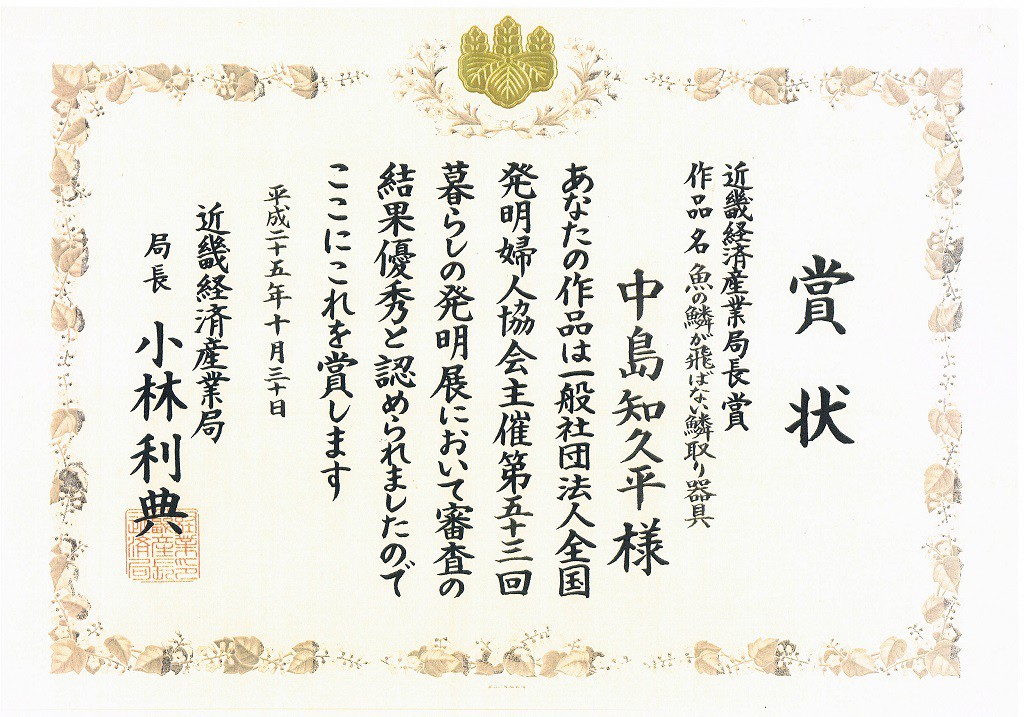 賞状
近畿経済産業局長賞
作品名 魚の鱗が飛ばない鱗取り器具
中島知久平様
あなたの作品は一般社団法人全国
発明婦人協会主催第五十三回
暮らしの発明展において審査の
結果優秀と認められましたので
ここにこれを賞します
平成二十五年十月三十日
近畿経済産業局
局長 小林利典